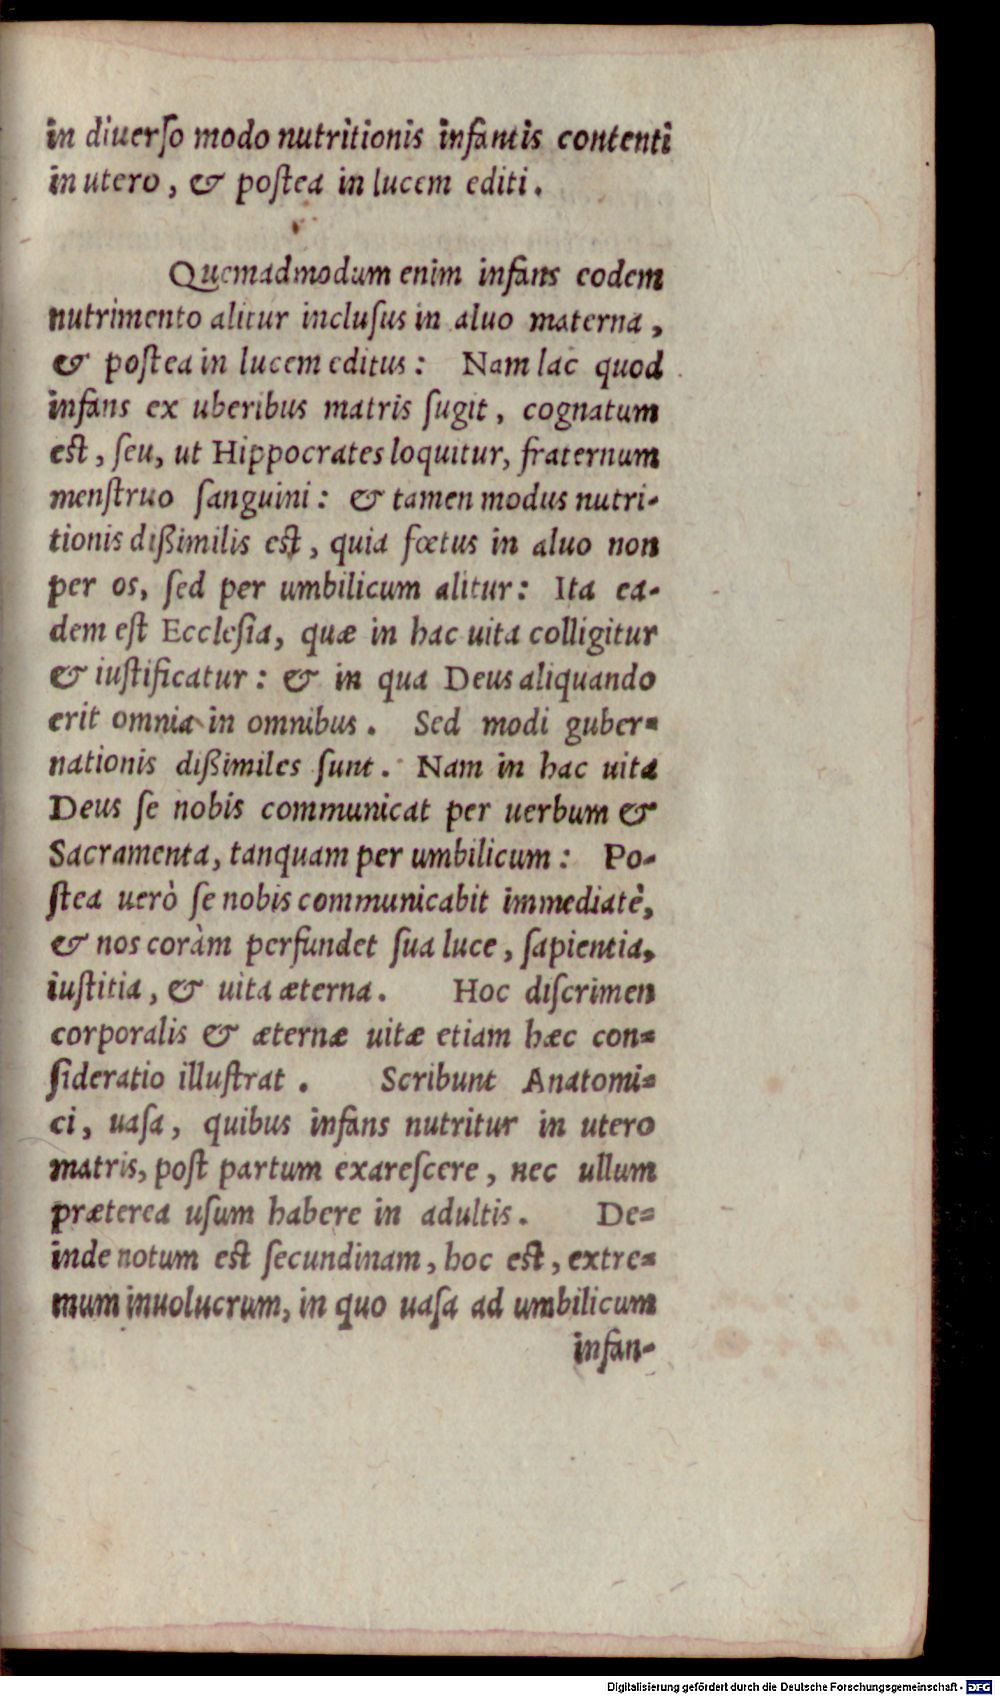 in diuerſo modo nutritionis infantis contenti
in utero, & poſtea in lucem editi.
Quemadmodum enim infans eodem
nutrimento alitur incluſus in aluo materna,
& poſtea in lucem editus: Nam lac quod
infans ex uberibus matris ſugit, cognatum
est, ſeu, ut Hippocrates loquitur, fraternum
menſtruo ſanguini: & tamen modus nutri-
tionis dißimilis est, quia fœtus in aluo non
per os, ſed per umbilicum alitur: Ita ea-
dem eſt Eccleſia, quæ in hac uita colligitur
& iuſtificatur: & in qua Deus aliquando
erit omnia in omnibus. Sed modi guber-
nationis dißimiles ſunt. Nam in hac uita
Deus ſe nobis communicat per uerbum &
Sacramenta, tanquam per umbilicum: Po-
ſtea uerò ſe nobis communicabit immediatè,
& nos coràm perfundet ſua luce, ſapientia,
iuſtitia, & uita æterna. Hoc diſcrimen
corporalis & æternæ uitæ etiam hæc con-
ſideratio illuſtrat. Scribunt Anatomi-
ci, uaſa, quibus infans nutritur in utero
matris, poſt partum exareſcere, nec ullum
præterea uſum habere in adultis. De-
inde notum est ſecundinam, hoc est, extre-
mum inuolucrum, in quo uaſa ad umbilicum
infan-
Digitalisierung gefördert durch die Deutsche Forschungsgemeinschaft - DFG